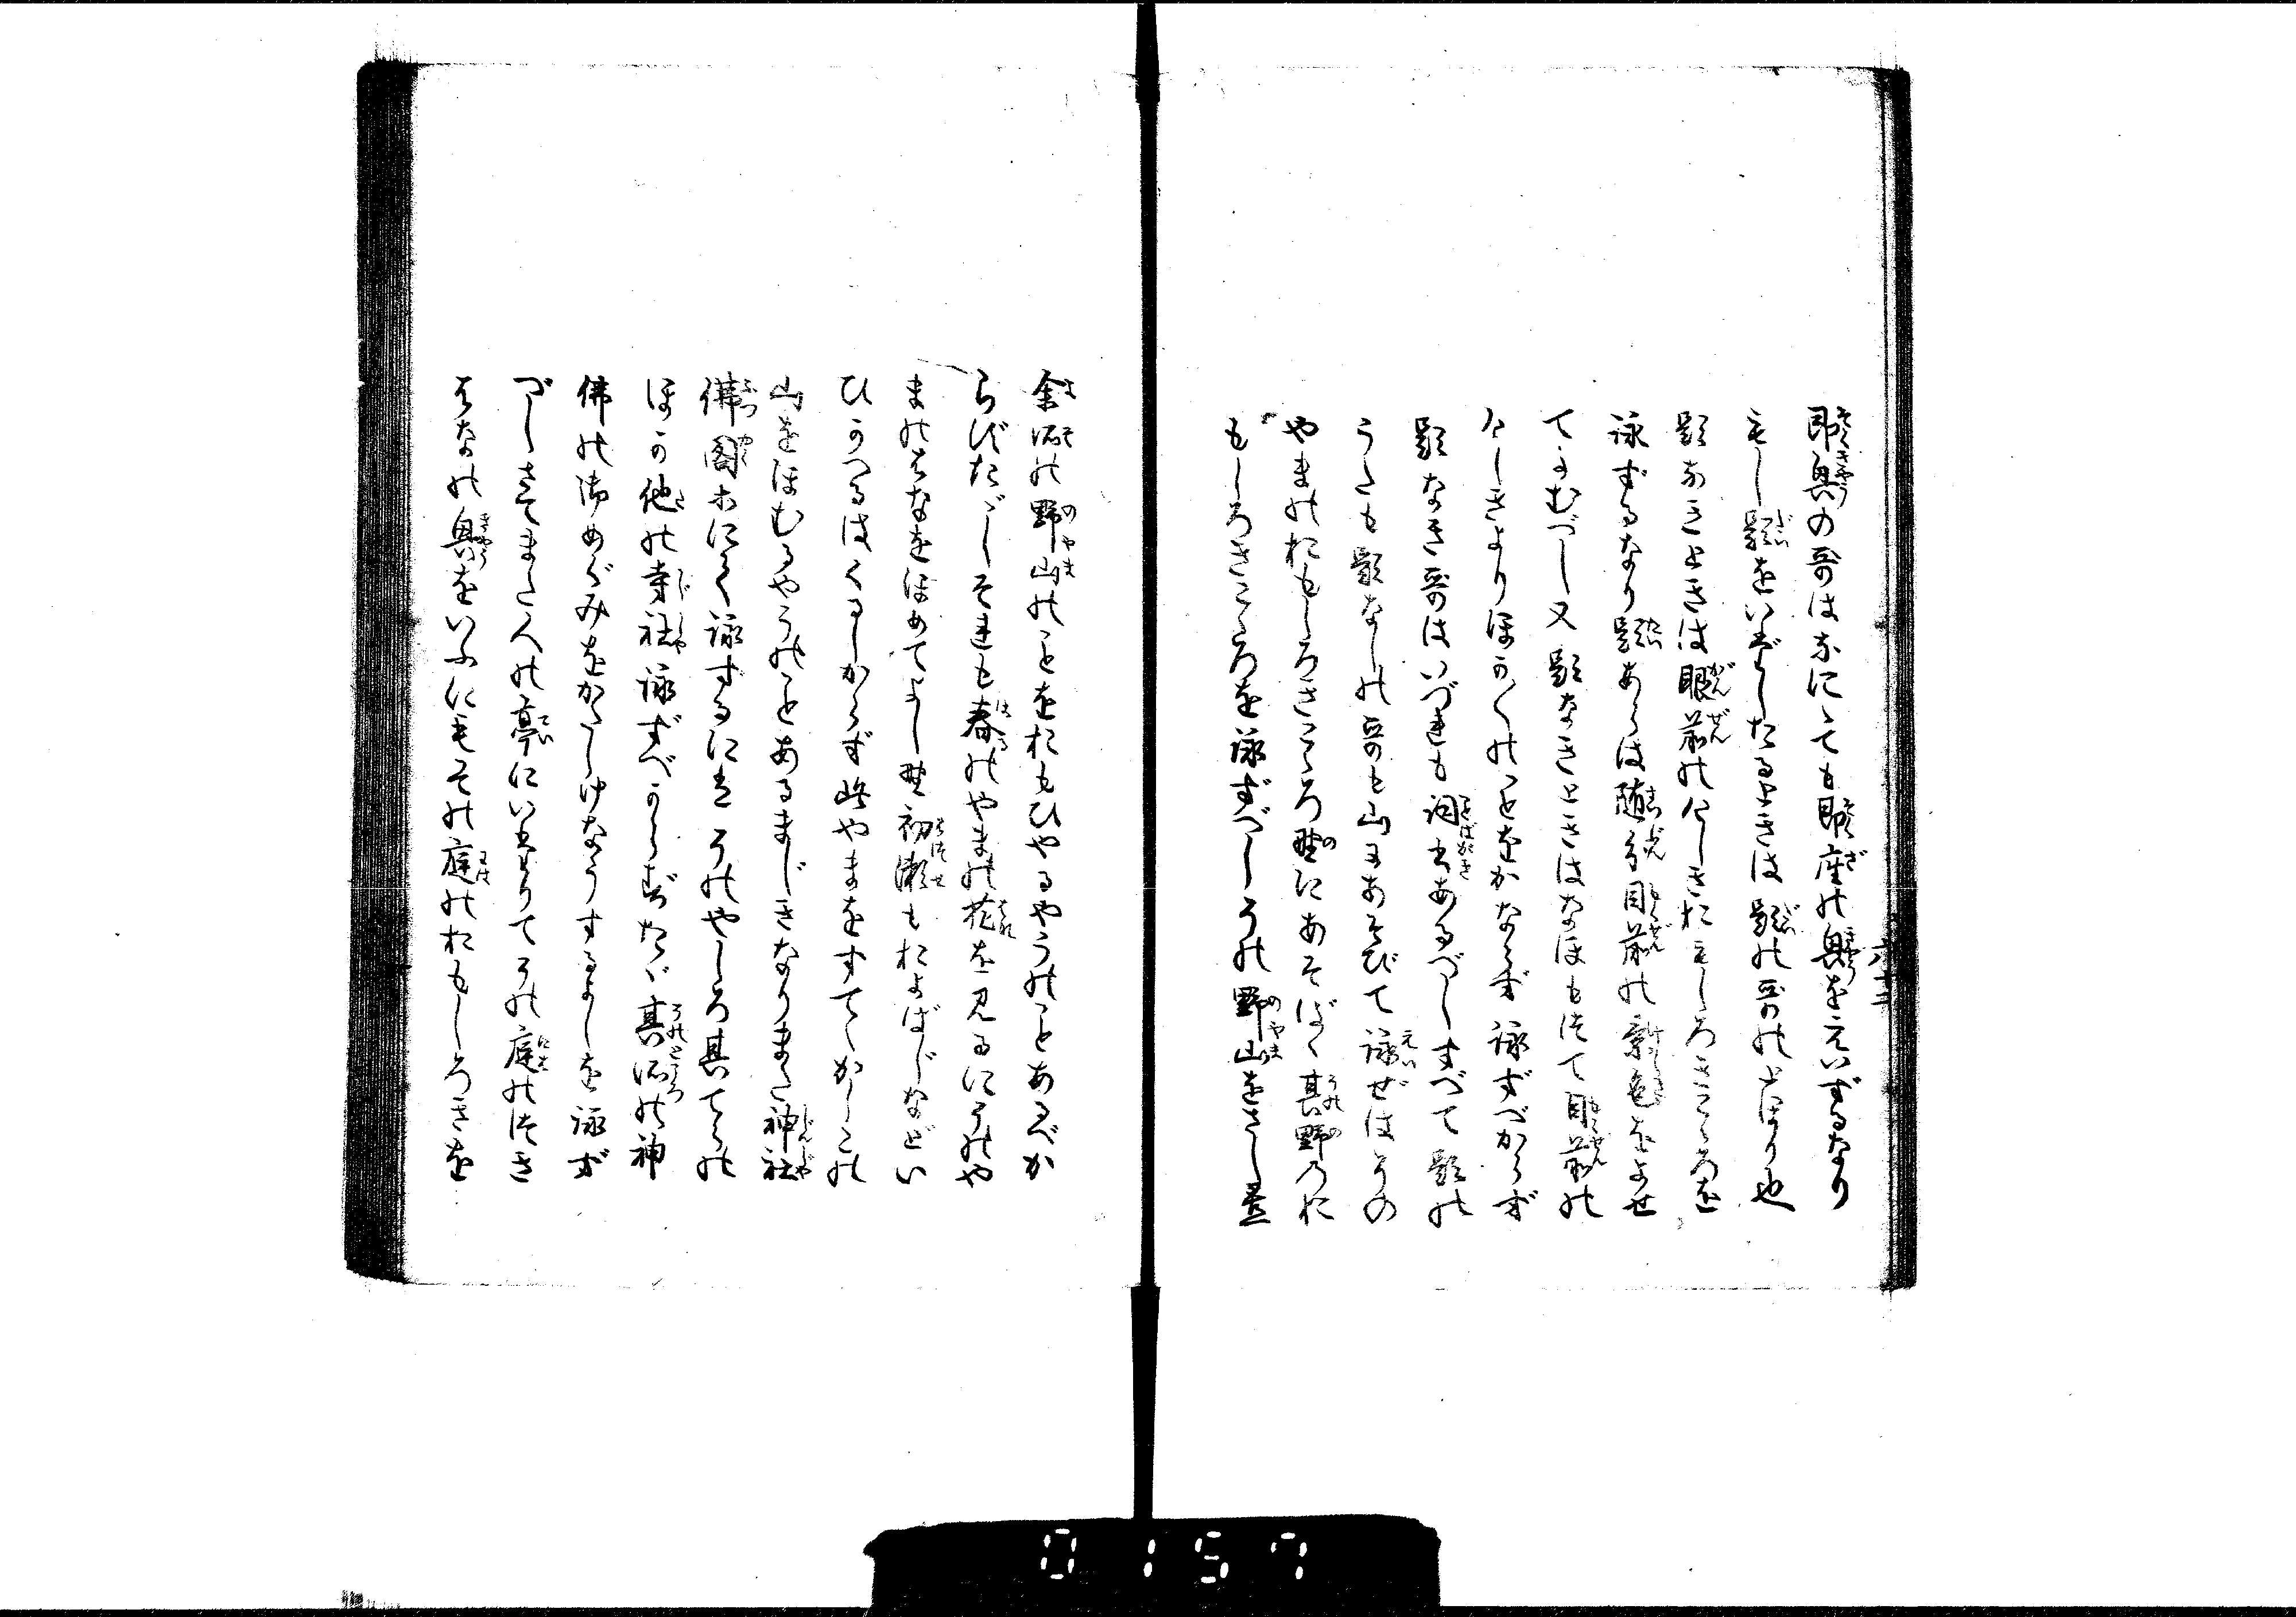 即興の哥はなにゝても即座の興をゑいずるなり
もし題をいだしたるときは題の哥のとほり也
題なきときは眼前のけしきおもしろきところを
詠ずるなり題あらは随分目前の景色をよせ
てよむべし又題なきときはなほもつて眼前の
けしきよりほかのことをかならず詠ずべからず
題なき哥はいづれも詞書あるべしすべて題の
うたも題なしの哥も山にあそびて詠ぜはその
やまのおもしろきところ野にあそばゝ其野のお
もしろきところを詠ずべしその野山をさし置
余所の野山のことをおもひやるやうのことあるべか
らずたゞしそれも春のやまの花を見るにそのや
まのはなをほめてよし野初瀬もおよばじなどい
ひかへるはくるしからず此やまをすてゝかしこの
山をほむるやうのことあるまじきなりまた神社
佛閣にて詠するにはそのやしろ其てらの
ほか他の寺社詠ずべからずたゞ其所の神
佛の御めぐみをかたじけなうするよしを詠ず
べしさてまた人の亭にいたりてその庭のけしき
はなの興をいふにもその庭のおもしろきを
六十三
0157